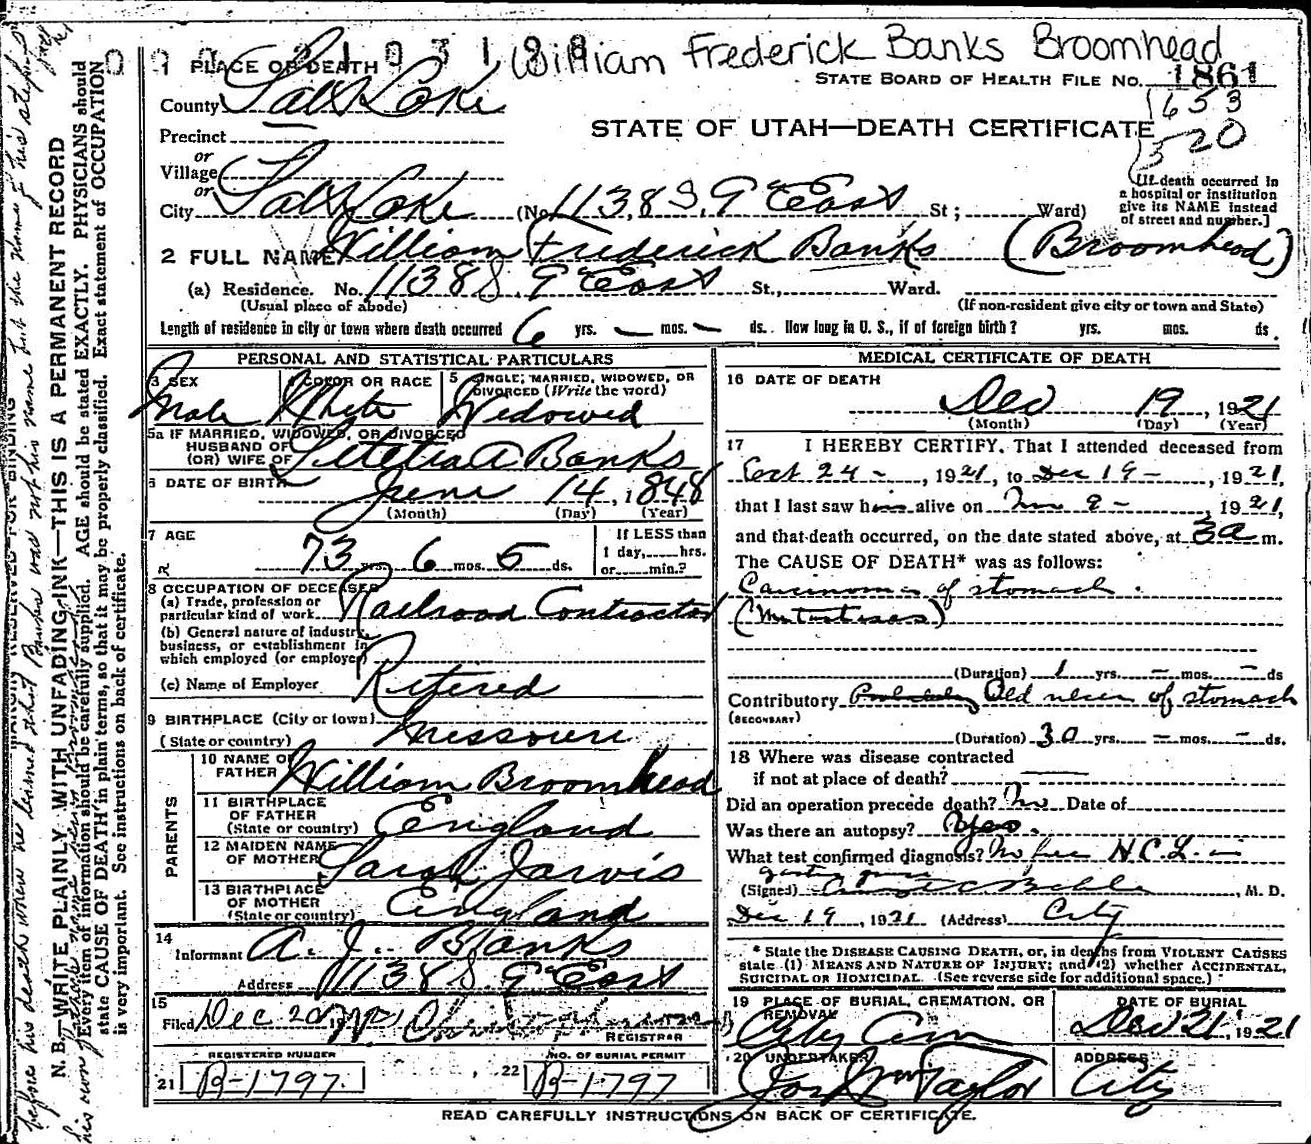 William Frederick Banks Broomhead
1 PLACE OF DEATH
STATE BOARD OF HEALTH FILE NO. 1861
County Salt Lake
653
520
Precinct
STATE OF UTAH—DEATH CERTIFICATE
or
Village
or
City Salt Lake (No. 1138 S. 9th East St; Ward)
[If death occurred in
a hospital or institution
give its NAME instead
of street and number.]
2 FULL NAME William Frederick Banks (Broomhead)
(a) Residence. No. 1138 S. 9th East St., Ward.
(Usual place of abode) (If non-resident give city or town and State)
Length of residence in city or town where death occurred 6 yrs. — mos. — ds. How long in U. S., if of foreign birth? yrs. mos. ds.
PERSONAL AND STATISTICAL PARTICULARS
3 SEX
Male
4 COLOR OR RACE
White
5 SINGLE, MARRIED, WIDOWED, OR
DIVORCED (Write the word)
Widowed
5a IF MARRIED, WIDOWED, OR DIVORCED
HUSBAND OF
(OR) WIFE OF Letetia A Banks
6 DATE OF BIRTH June 14, 1848
(Month) (Day) (Year)
7 AGE
73 yrs. 6 mos. 5 ds.
If LESS than
1 day, hrs.
or min.?
8 OCCUPATION OF DECEASED
(a) Trade, profession or
particular kind of work Railroad Contractor
(b) General nature of industry,
business, or establishment in
which employed (or employer)
(c) Name of Employer Retired
9 BIRTHPLACE (City or town)
(State or country) Missouri
PARENTS
10 NAME OF
FATHER William Broomhead
11 BIRTHPLACE
OF FATHER
(State or country) England
12 MAIDEN NAME
OF MOTHER Sarah Jarvis
13 BIRTHPLACE
OF MOTHER
(State or country) England
14
Informant A. J. Banks
Address 1138 S. 9th East
15
Filed Dec 20
REGISTRAR
REGISTERED NUMBER
21 B-1797.
NO. OF BURIAL PERMIT
22 B-1797
MEDICAL CERTIFICATE OF DEATH
16 DATE OF DEATH
Dec 19, 1921
(Month) (Day) (Year)
17 I HEREBY CERTIFY, That I attended deceased from
Oct 24 -, 1921, to Dec 19 -, 1921,
that I last saw him alive on 9 -, 1921,
and that death occurred, on the date stated above, at 3a m.
The CAUSE OF DEATH* was as follows:
Carcinoma of stomach.
(Metastases)
(Duration) 1 yrs. — mos. — ds
Contributory Probably Old ulcer of stomach
(SECONDARY)
(Duration) 30 yrs. — mos. — ds.
18 Where was disease contracted
if not at place of death?
Did an operation precede death? No Date of
Was there an autopsy? Yes.
What test confirmed diagnosis? No free H.C.L. in
(Signed) , M. D.
Dec 19, 1921 (Address) City
* State the DISEASE CAUSING DEATH, or, in deaths from VIOLENT CAUSES
state (1) MEANS AND NATURE OF INJURY; and (2) whether ACCIDENTAL,
SUICIDAL OR HOMICIDAL. (See reverse side for additional space.)
19 PLACE OF BURIAL, CREMATION, OR
REMOVAL
City Cem
DATE OF BURIAL
Dec 21, 1921
20 UNDERTAKER
Jos Wm Taylor
ADDRESS
City
READ CAREFULLY INSTRUCTIONS ON BACK OF CERTIFICATE.
N. B.—WRITE PLAINLY WITH UNFADING INK—THIS IS A PERMANENT RECORD
Every item of information should be carefully supplied. AGE should be stated EXACTLY. PHYSICIANS should
state CAUSE OF DEATH in plain terms, so that it may be properly classified. Exact statement of OCCUPATION
is very important. See instructions on back of certificate.